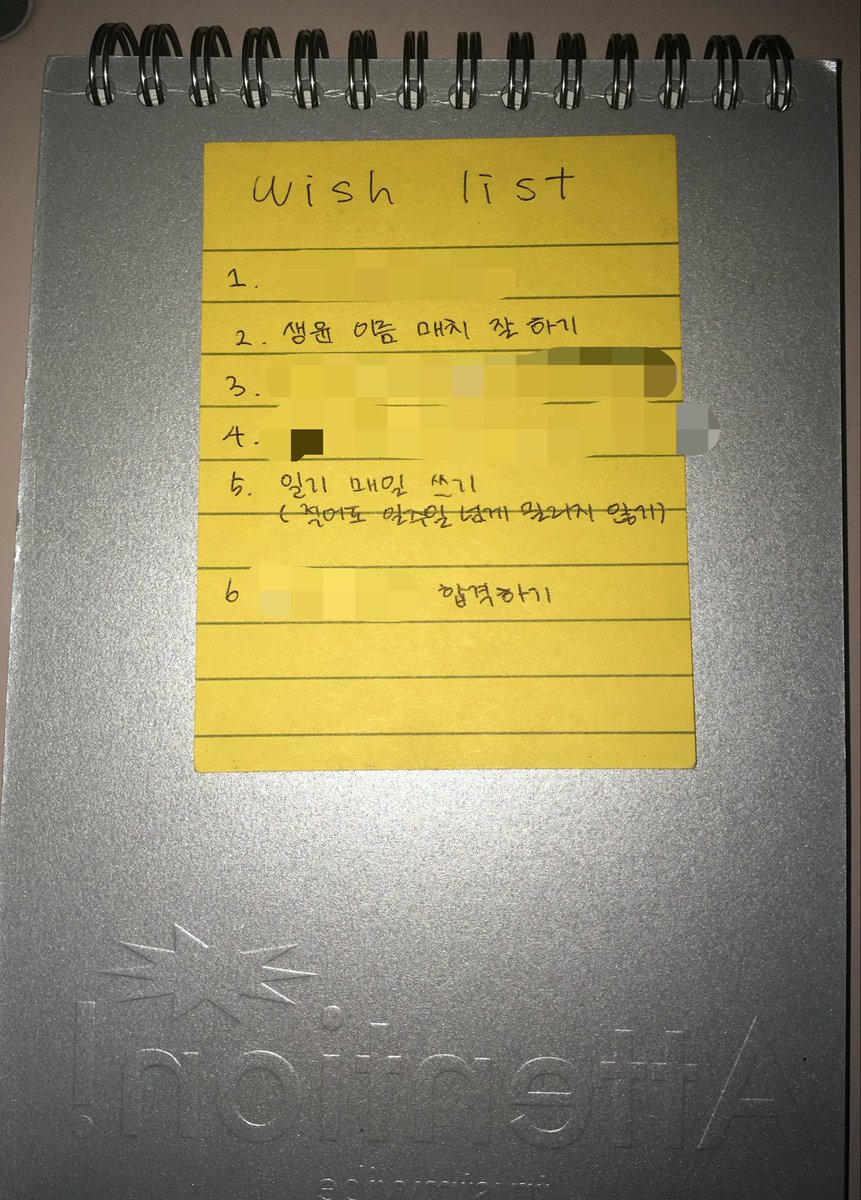 wish list
1.
2. 생윤 이름 매치 잘하기
3.
4.
5. 일기 매일 쓰기
( 적어도 일주일 넘게 밀리지 않기)
6 합격하기
Attention!